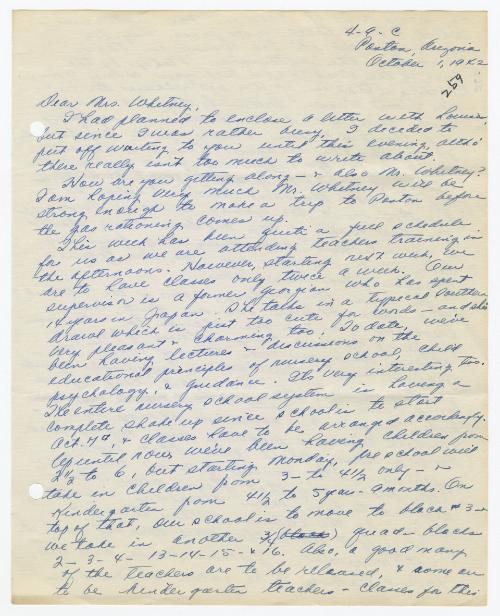 4-9-C
Poston, Arizona
October 1, 1942
259
Dear Mrs. Whitney,
I had planned to enclose a letter with Louise,
but since I was rather busy, I decided to
put off writing to you until this evening, altho'
there really isn't too much to write about.
How are you getting along - & also Mr. Whitney?
I am hoping very much Mr. Whitney will be
strong enough to make a trip to Poston before
the gas rationing comes up.
This week has been quite a full schedule
for us as we are attending teachers training in
the afternoons. However starting next week, we
are to have classes only twice a week. Our
supervisor is a former Georgian who has spent
14 years in Japan. She talks in a typical Southern
drawl which is just too cute for words - and she's
very pleasant & charming too. To date, we've
been having lectures & discussions on the
educational principles of nursery school, child
psychology, & guidance. Its very interesting, too.
The entire nursery school system is having a
complete shake up since school is to start
Oct. 7th, & classes have to be arranged accordingly.
Up until now we've been having children from
2 1/3 to 6, but starting Monday, preschool will
take in children from 3- to 4 1/2 only - &
Kindergarten from 4 1/2 to 5 years - 9 months. On
top of that, our school is to move to block #3 - &
we take in another 3/4 (block) quad - blocks
2 - 3 - 4 - 13-14-15- & 16. Also, a good many
of the teachers are to be released, & some are
to be kindergarten teachers - classes for this